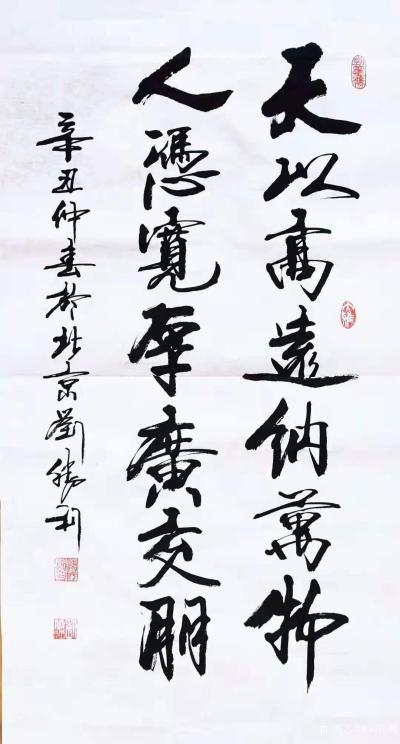 天以高遠納萬物
人憑寬厚廣交朋
辛丑仲春於北京劉勝利